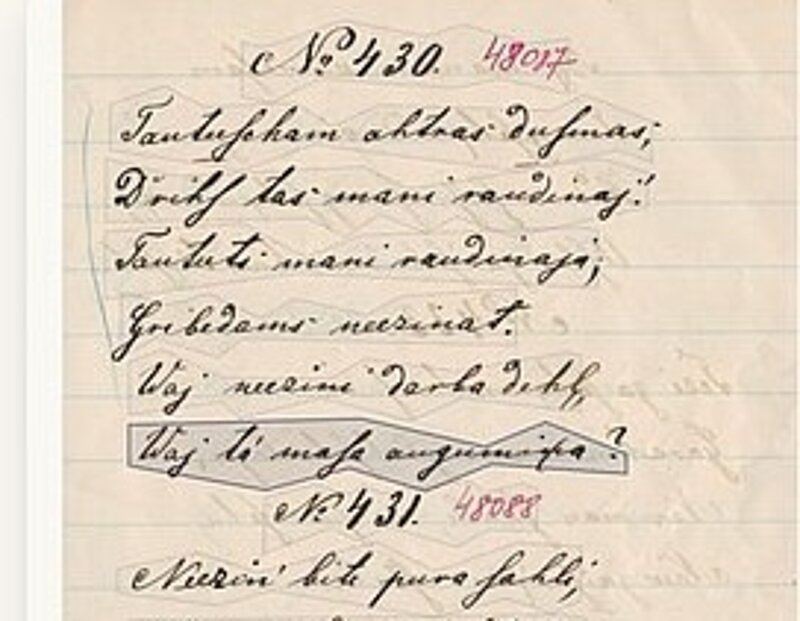 № 430. 48017
Tautuscham ahtras dusmas,
Drihs tas mani raudinaj!
Taututs mani raudinaja,
Gribedams neezinat.
Waj neezini darba dehł,
Waj tó masa augumiņa?
№ 431. 48088
Neezin' bite pura sahli,